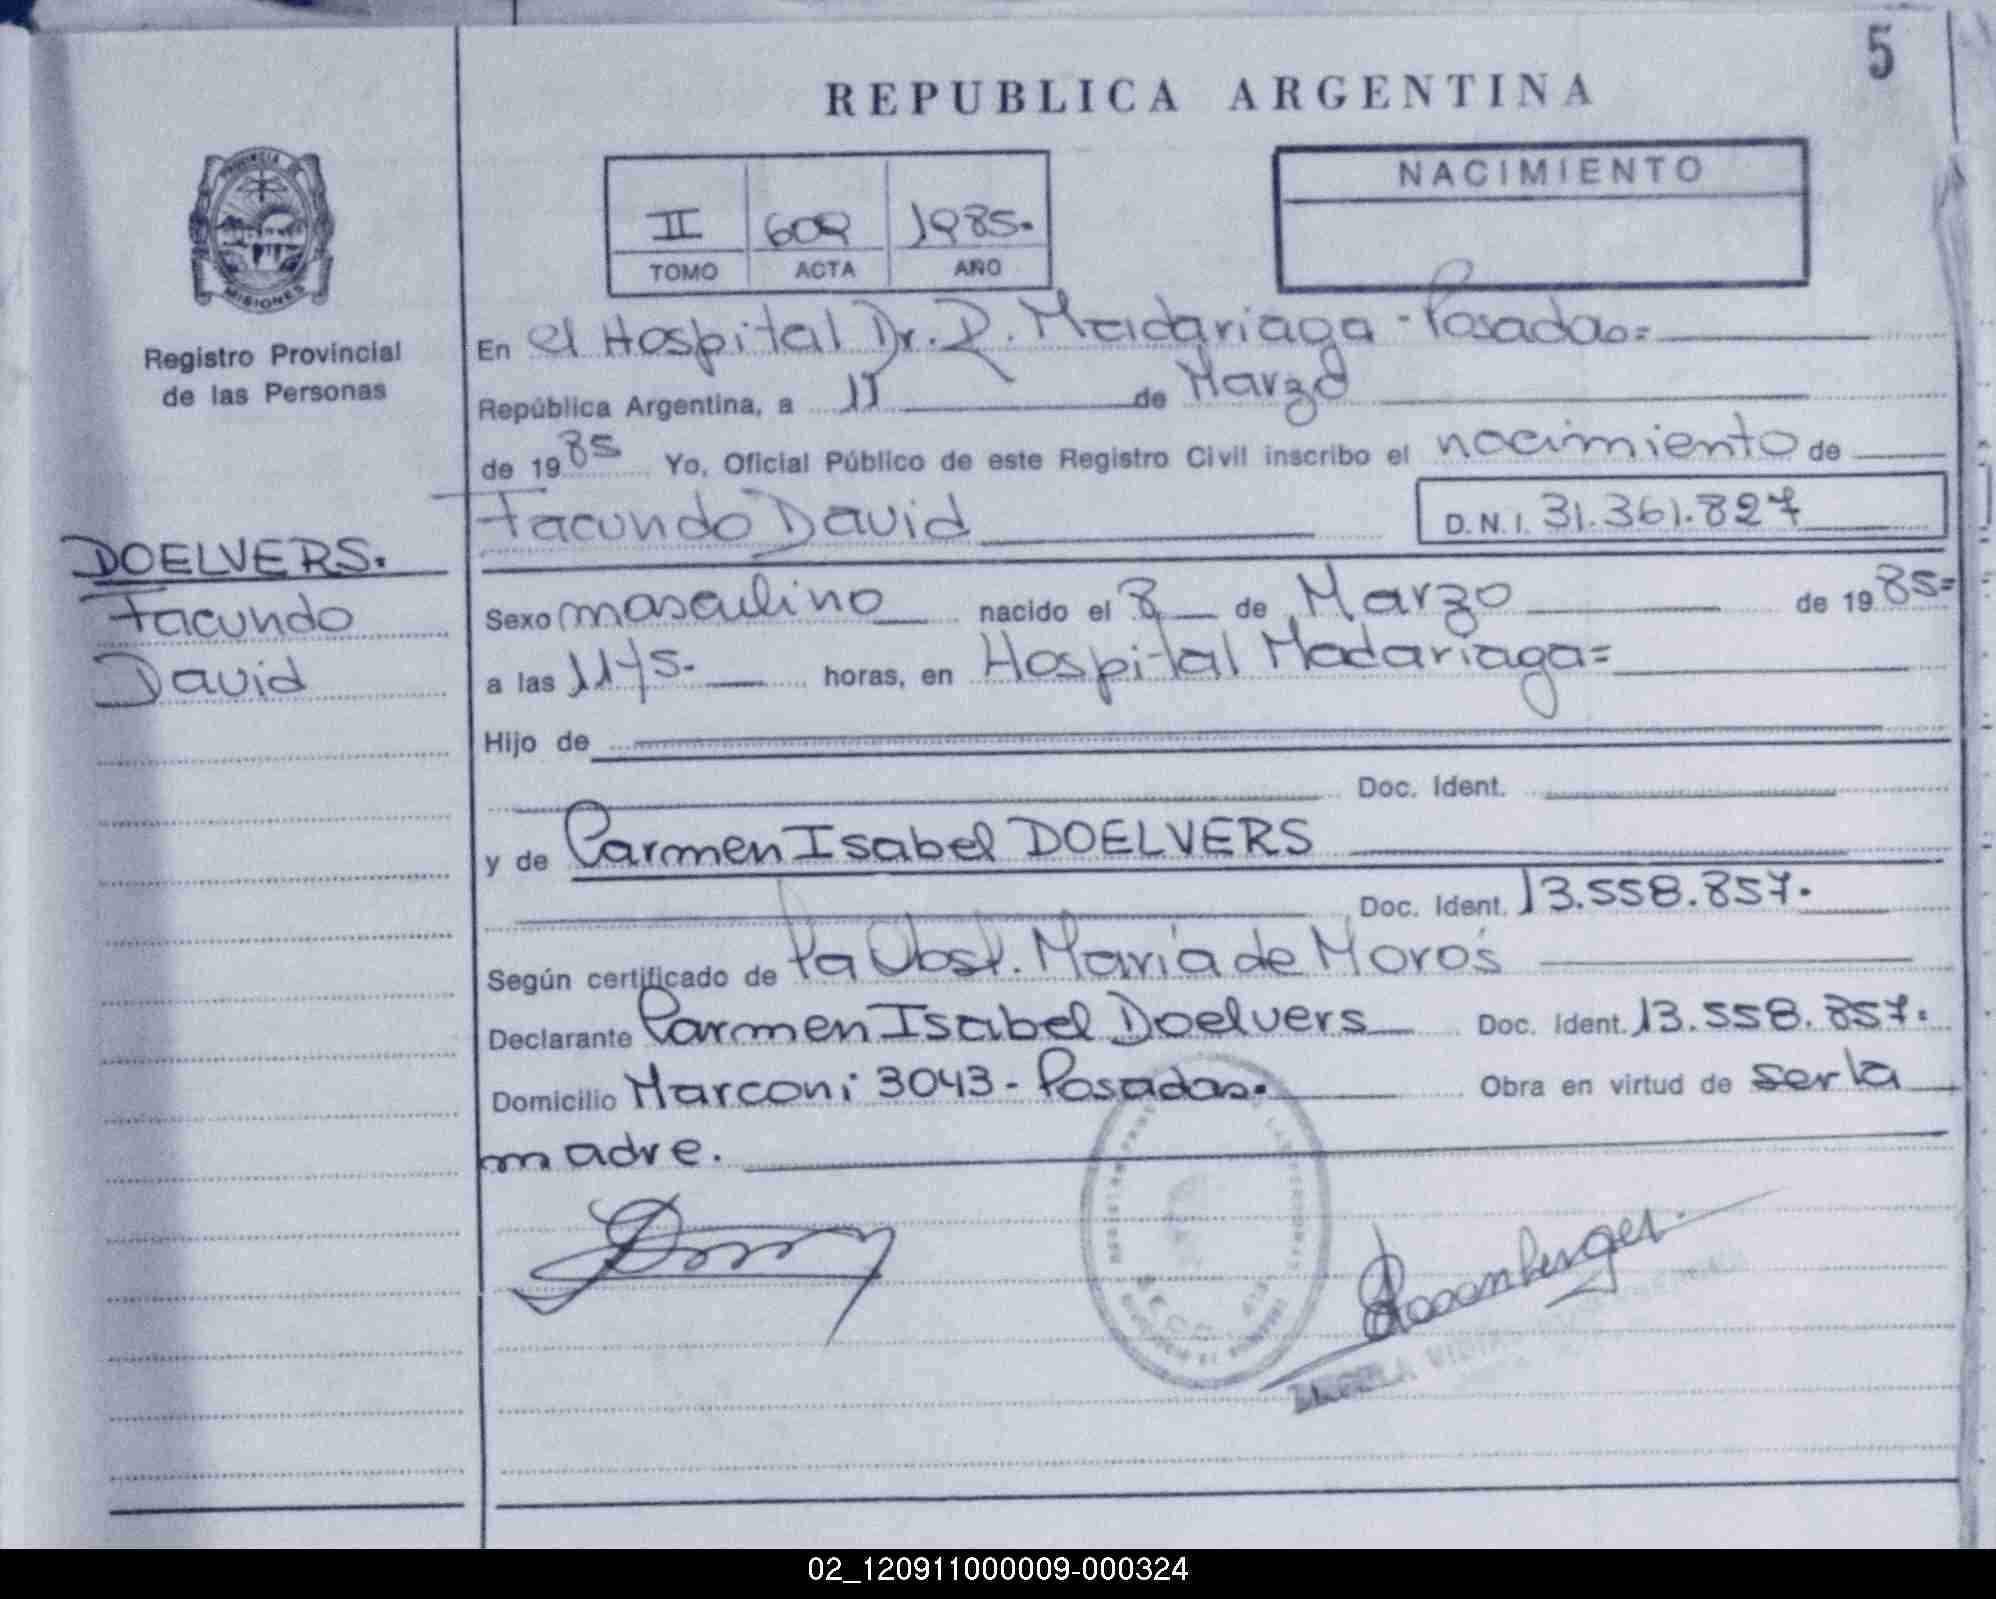 5
REPUBLICA ARGENTINA
PROVINCIA
MISIONES
Registro Provincial
de las Personas
II 609 1985.
TOMO ACTA AÑO
NACIMIENTO
En el Hospital Dr. R. Madariaga - Posadas=
República Argentina, a 11 de Marzo
de 1985 Yo, Oficial Público de este Registro Civil inscribo el nacimiento de
Facundo David D.N.I. 31.361.827
DOELVERS.
Facundo
David
Sexo masculino nacido el 8 de Marzo de 1985=
a las horas, en Hospital Madariaga=
Hijo de
Doc. Ident.
y de Carmen Isabel DOELVERS
Doc. Ident. 13.558.857.
Según certificado de la Obst. María de
Declarante Carmen Isabel Doelvers Doc. Ident. 13.558.857.
Domicilio Marconi 3043 - Posadas. Obra en virtud de ser la
madre.
02_120911000009-000324